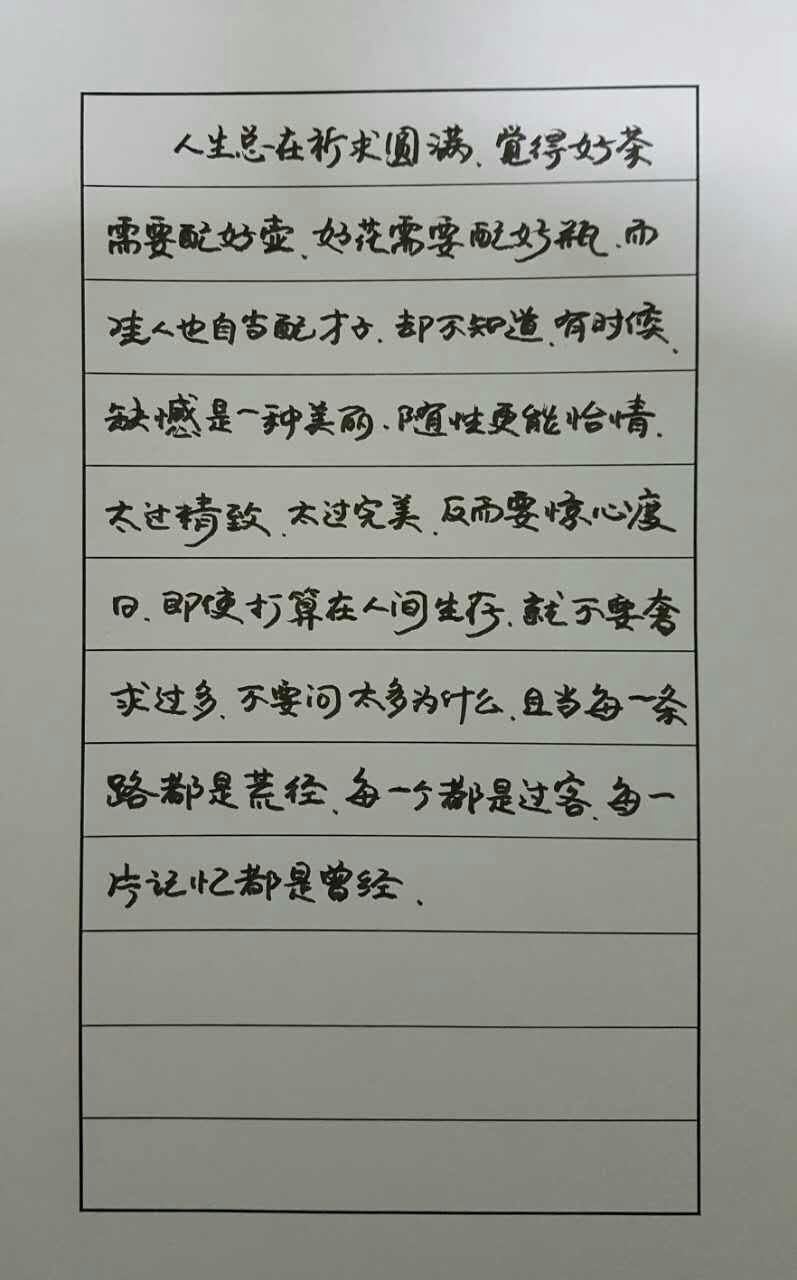 人生总在祈求圆满、觉得好茶
需要配好壶、好花需要配好瓶、而
佳人也自当配才子、却不知道、有时候、
缺憾是一种美丽、随性更能怡情、
太过精致、太过完美、反而要惊心度
日、即使打算在人间生存、就不要奢
求过多、不要问太多为什么、且当每一条
路都是荒径、每一个都是过客、每一
片记忆都是曾经、